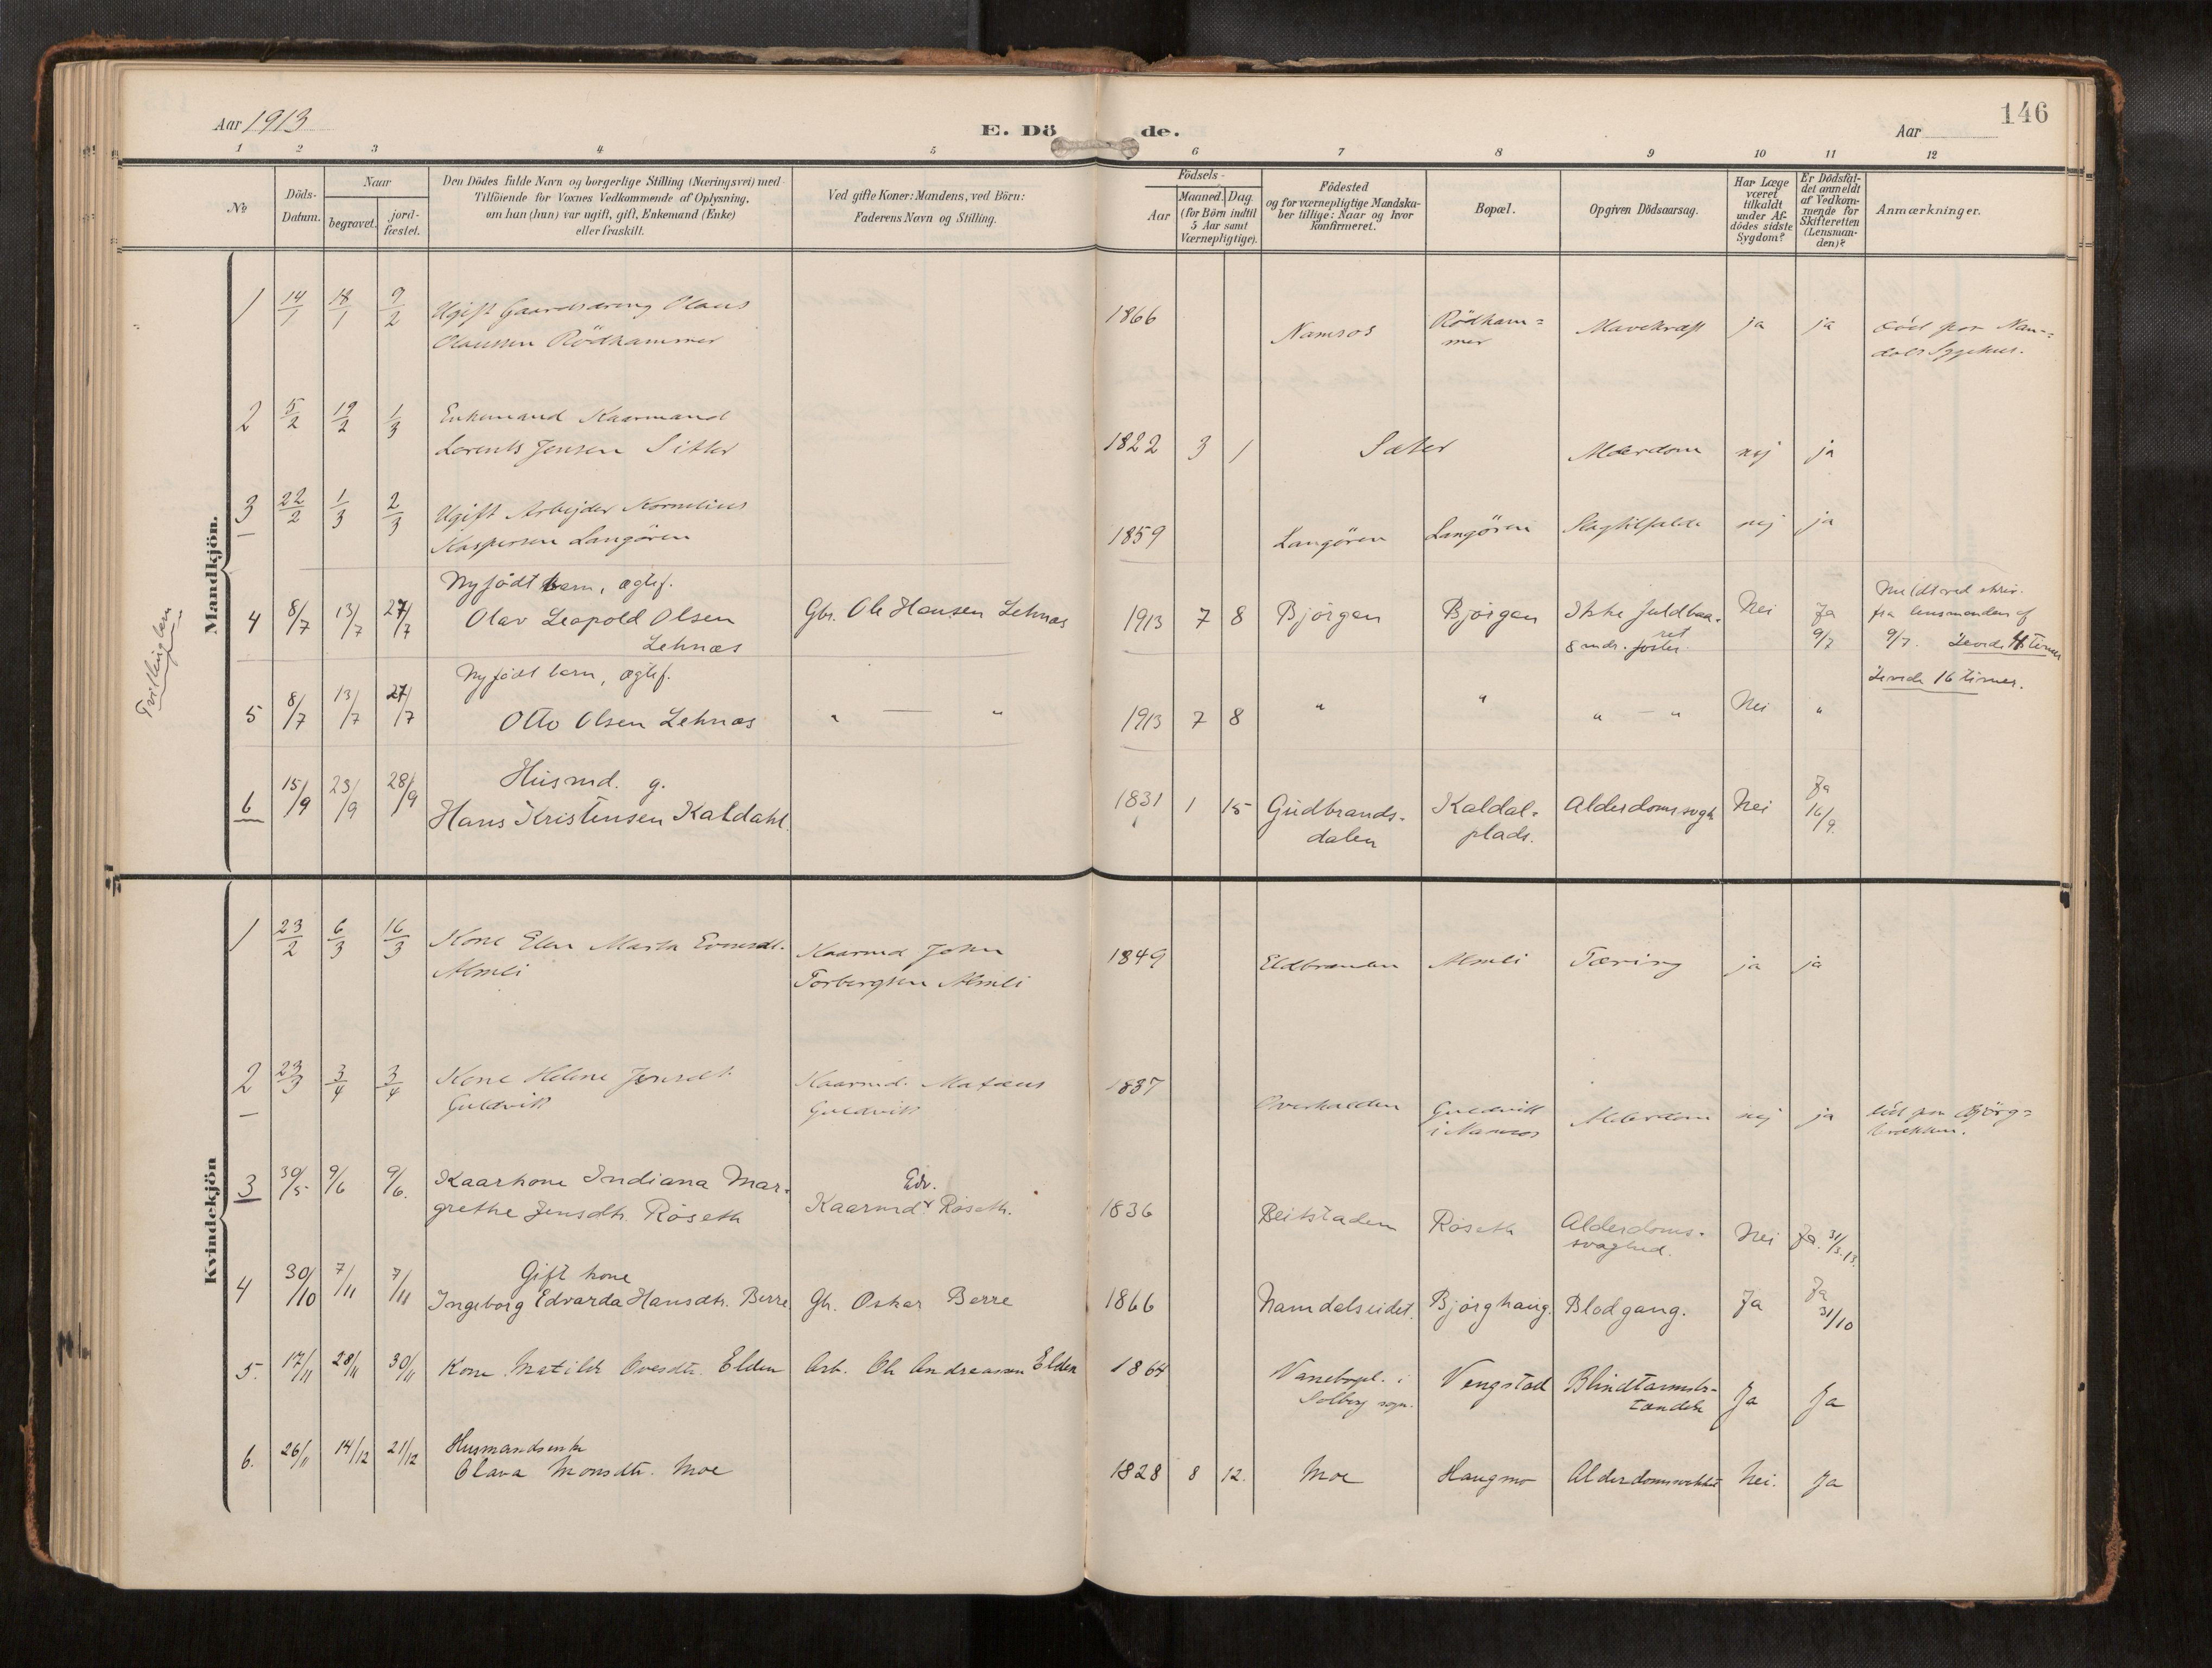 Aar 1913
E. Dö de.
Aar
146
1 2 3 4 5 6 7 8 9 10 11 12
No
Döds-
Datum.
Naar
begravet.
jord-
fæstet.
Den Dödes fulde Navn og borgerlige Stilling (Næringsvei) med
Tilföiende for Voxnes Vedkommende af Oplysning,
om han (hun) var ugift, gift, Enkemand (Enke)
eller fraskilt.
Ved gifte Koner: Mandens, ved Börn:
Faderens Navn og Stilling.
Födsels-
Aar
Maaned. Dag
(for Börn indtil
5 Aar samt
Værnepligtige).
Födested
og for værnepligtige Mandska-
ber tillige: Naar og hvor
konfirmeret.
Bopæl.
Opgiven Dödsaarsag.
Har Læge
været
tilkaldt
under Af-
dödes sidste
Sygdom?
Er Dödsfal-
det anmeldt
af Vedkom-
mende for
Skifteretten
(Lensman-
den)?
Anmærkninger.
Mandkjön.
1 14/1 18/1 9/2 Ugift Olaus
Olaussen Rödhammer
1866 Namsos Rödham=
mer
Mavekræft ja ja död paa Nam=
dals Sygehus.
2 5/2 19/2 1/3 Enkemand Kaarmand
Lorents Jensen Sitter
1822 3 1 Sæter Alderdom nej ja
3 22/2 1/3 2/3 Ugift Arbejder Kornelius
Kaspersen Langören
1859 Langören Langören Slagtilfælde nej ja
Tvillingbörn
4 8/7 13/7 27/7 Nyfödt barn, ægtef.
Olav Leopold Olsen
Lehnæs
Gbr. Ole Hansen Lehnæs
1913 7 8 Björgen Björgen Ikke fuldbaa-
ret
8 mdr. foster.
Nei Ja
9/7
Meldt ved skriv.
fra lensmanden af
9/7. Levde timer
5 8/7 13/7 27/7 Nyfödt barn, ægtef.
Otto Olsen Lehnæs
" — "
1913 7 8 " " " — " Nei "
Levede 16 timer.
6 15/9 23/9 28/9 Husmd. g.
Hans Kristensen Kaldahl.
1831 1 15 Gudbrands-
dalen
Kaldal-
plads.
Alderdomssvagh. Nei Ja
16/9.
Kvindekjön
1 23/2 6/3 16/3 Kone Elen Marta
Almli
Kaarmd John
Torbergsen Almli
1849 Eldbranden Almli Tæring ja ja
2 23/3 3/4 3/4 Kone Helene Jensdt.
Guldvik
Kaarmd. Matæus
Guldvik
1837 Overhalden Guldvik
i Namsos
Alderdom nej ja död paa Björg=
3 30/5 9/6 9/6. Kaarkone Indiana Mar-
grethe Jensdtr. Röseth
Edv.
Kaarmd Röseth.
1836 Beitstaden Röseth Alderdoms-
svaghed.
Nei Ja. 31/5.13.
4 30/10 7/11 7/11 Gift kone
Ingeborg Edvarda Hansdtr. Berre
Gb. Oskar Berre
1866 Namdalseidet. Björghaug. Blodgang. Ja Ja
31/10
5. 17/11 28/11 30/11 Kone Matilde Ovesdtr. Elden
Arb. Ole Andreassen Elden
1864 i
Solberg sogn.
Vengstad Blindtarmsbe-
tændelse
Ja Ja
6. 26/11 14/12 21/12 Husmandsenke
Olava Monsdtr. Moe
1828 8 12. Moe Haugmo Nei. Ja